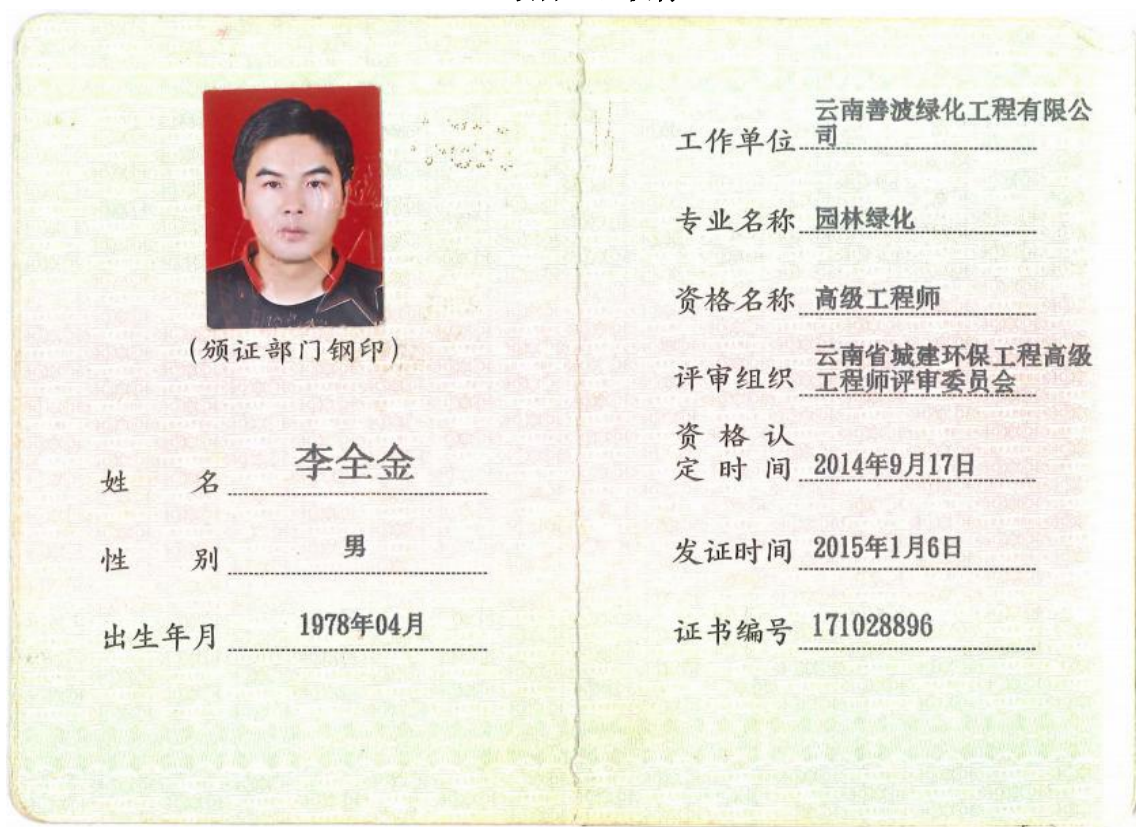 (颁证部门钢印)
姓 名 李全金
性 别 男
出生年月 1978年04月
云南善波绿化工程有限公
工作单位 司
专业名称 园林绿化
资格名称 高级工程师
云南省城建环保工程高级
评审组织 工程师评审委员会
资 格 认
定 时 间 2014年9月17日
发证时间 2015年1月6日
证书编号 171028896